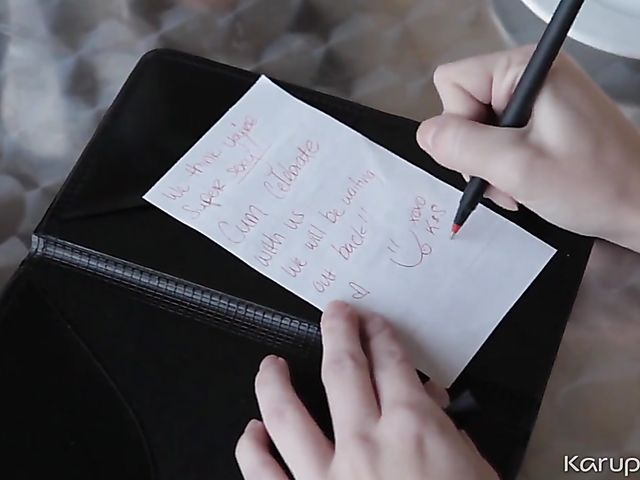 We think you're
super sexy
Cum Celebrate
with us
We will be waiting
out back!!
xoxo
K&S
Karup